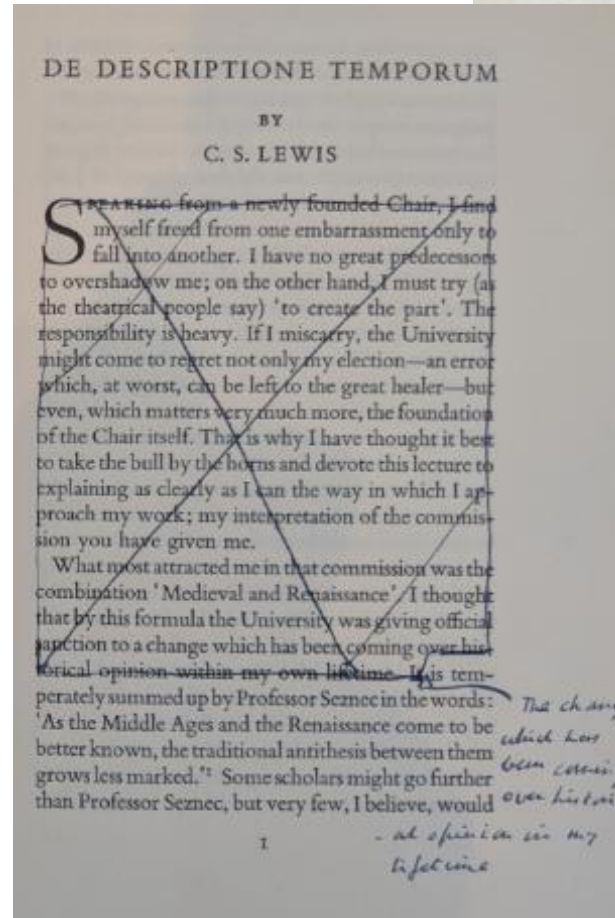 DE DESCRIPTIONE TEMPORUM
BY
C. S. LEWIS
SPEAKING from a newly founded Chair, I find
myself freed from one embarrassment only to
fall into another. I have no great predecessors
to overshadow me; on the other hand, I must try (as
the theatrical people say) 'to create the part'. The
responsibility is heavy. If I miscarry, the University
might come to regret not only my election—an error
which, at worst, can be left to the great healer—but
even, which matters very much more, the foundation
of the Chair itself. That is why I have thought it best
to take the bull by the horns and devote this lecture to
explaining as clearly as I can the way in which I ap-
proach my work; my interpretation of the commis-
sion you have given me.
What most attracted me in that commission was the
combination 'Medieval and Renaissance'. I thought
that by this formula the University was giving official
sanction to a change which has been coming over his-
torical opinion within my own lifetime. It is tem-
perately summed up by Professor Seznec in the words:
'As the Middle Ages and the Renaissance come to be
better known, the traditional antithesis between them
grows less marked.'¹ Some scholars might go further
than Professor Seznec, but very few, I believe, would
The chang
which has
been coming
over histori
- al opinion in my
lifetime
1